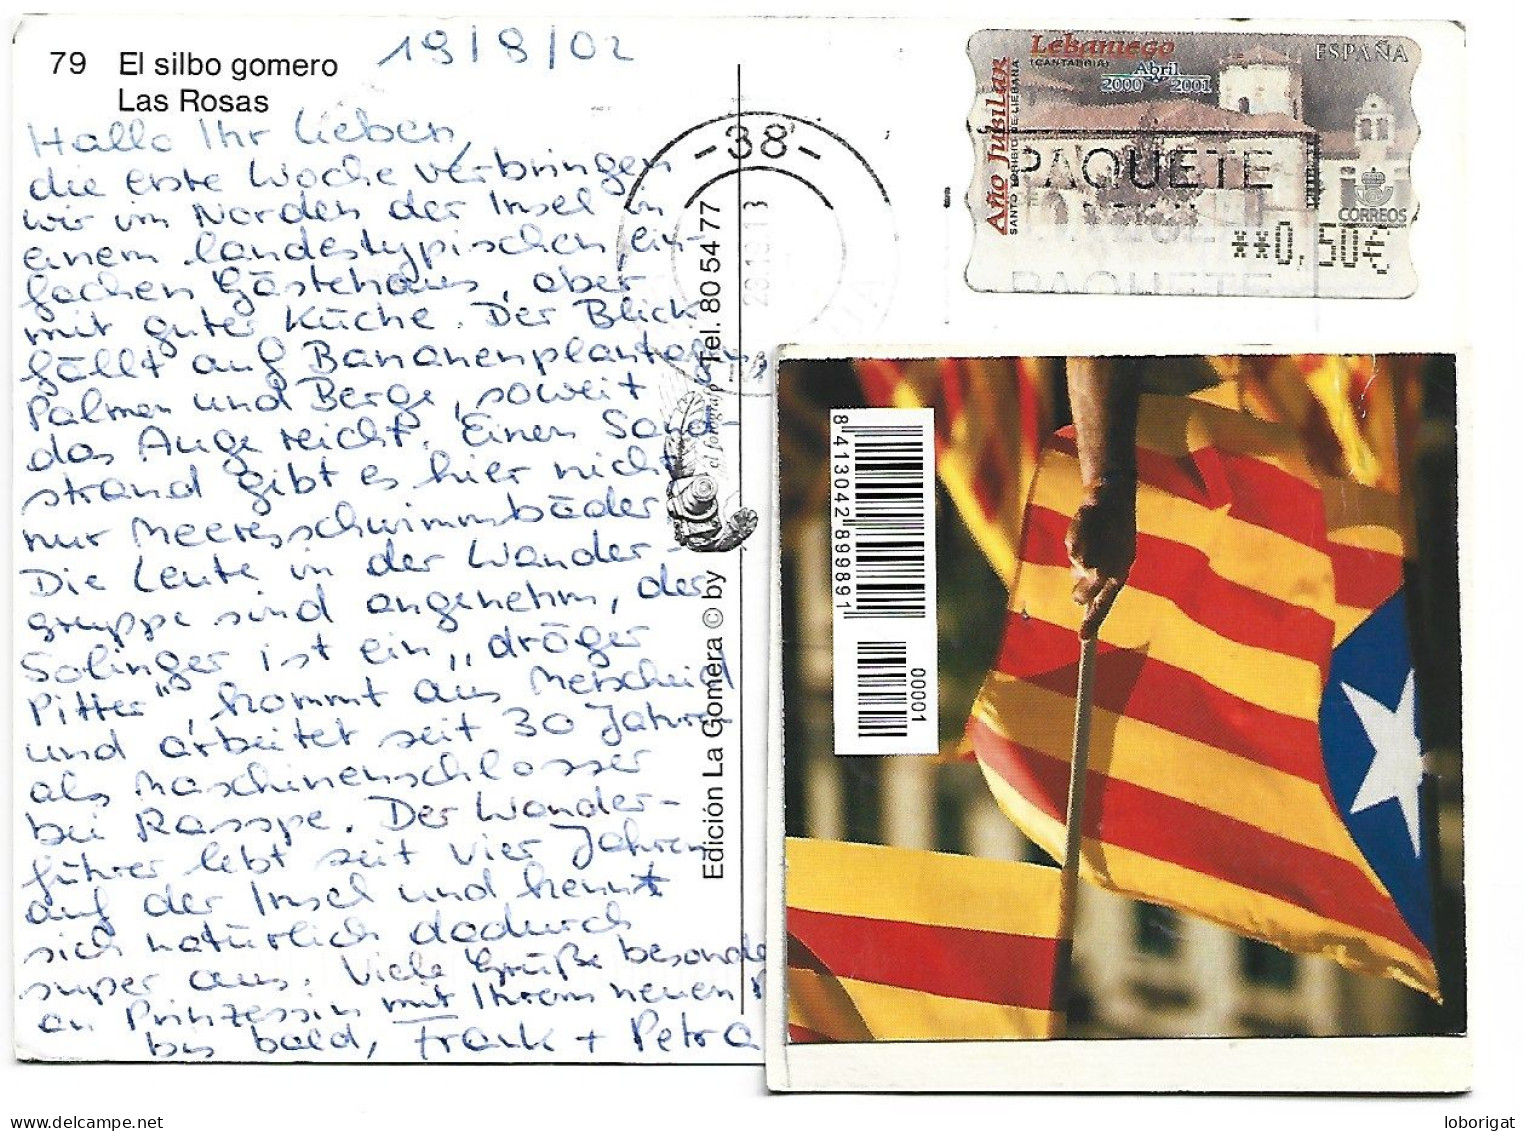 79 El silbo gomero
Las Rosas
19/9/02
Hallo Ihr Lieben,
die erste Woche verbringen
wir im Norden der Insel in
einem landestypischen ein-
fachen Gästehaus, aber
mit guter Küche. Der Blick
fällt auf Bananenplantagen
Palmen und Berge, soweit
das Auge reicht. Einen Sand-
strand gibt es hier nicht
nur Meeresschwimmbäder
Die Leute in der Wander-
gruppe sind angenehm, der
Solinger ist ein „dröger
Pitter", kommt aus Merscheid
und arbeitet seit 30 Jahren
als Maschinenschlosser
bei Rasspe. Der Wander-
führer lebt seit vier Jahren
auf der Insel und kennt
sich natürlich dadurch
super aus. Viele Grüße besonde
an Prinzessin mit Ihrem neuen
bis bald, Frank + Petra
Edición La Gomera © by
el fotógrafo
Tel. 80 54 77
-38-
Año Jubilar
SANTO TORIBIO DE LIÉBANA
Lebaniego
(CANTABRIA)
Abril
2000 2001
ESPAÑA
CORREOS
**0,50€
PAQUETE
PAQUETE
PAQUETE
8 413042 899891
00001
delcampe.net
loborigat